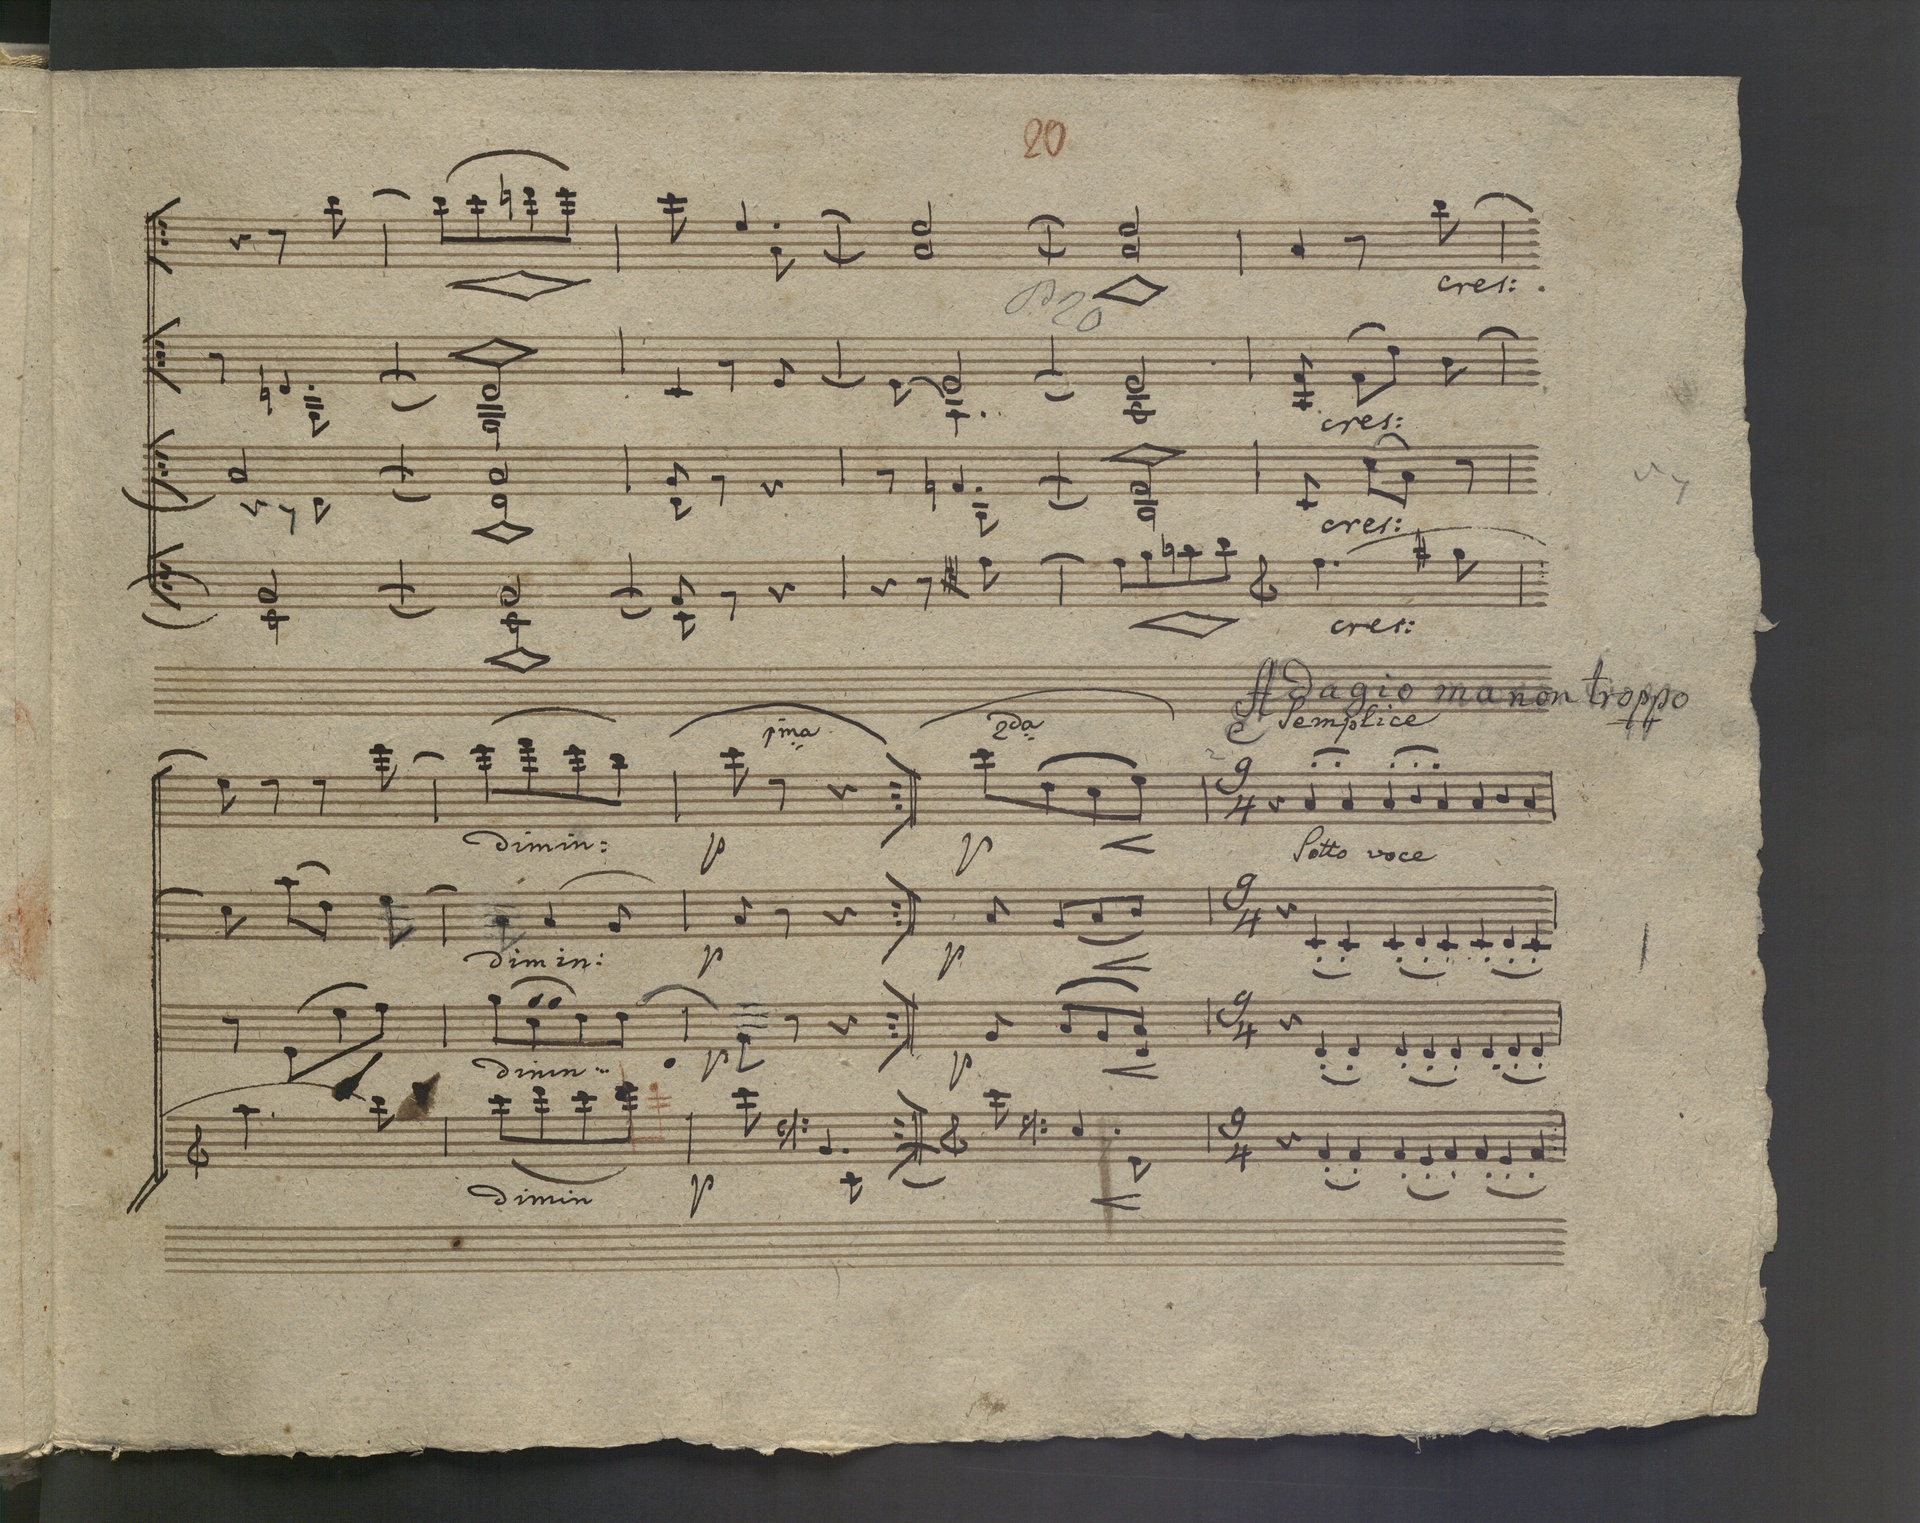 20
cres:
P 20
cres:
cres:
cres:
Adagio ma non troppo
e Semplice
1ma
2da
9
4
dimin:
p
p
Sotto voce
9
4
dimin:
p
p
9
4
dimin
p
p
9
4
dimin
p